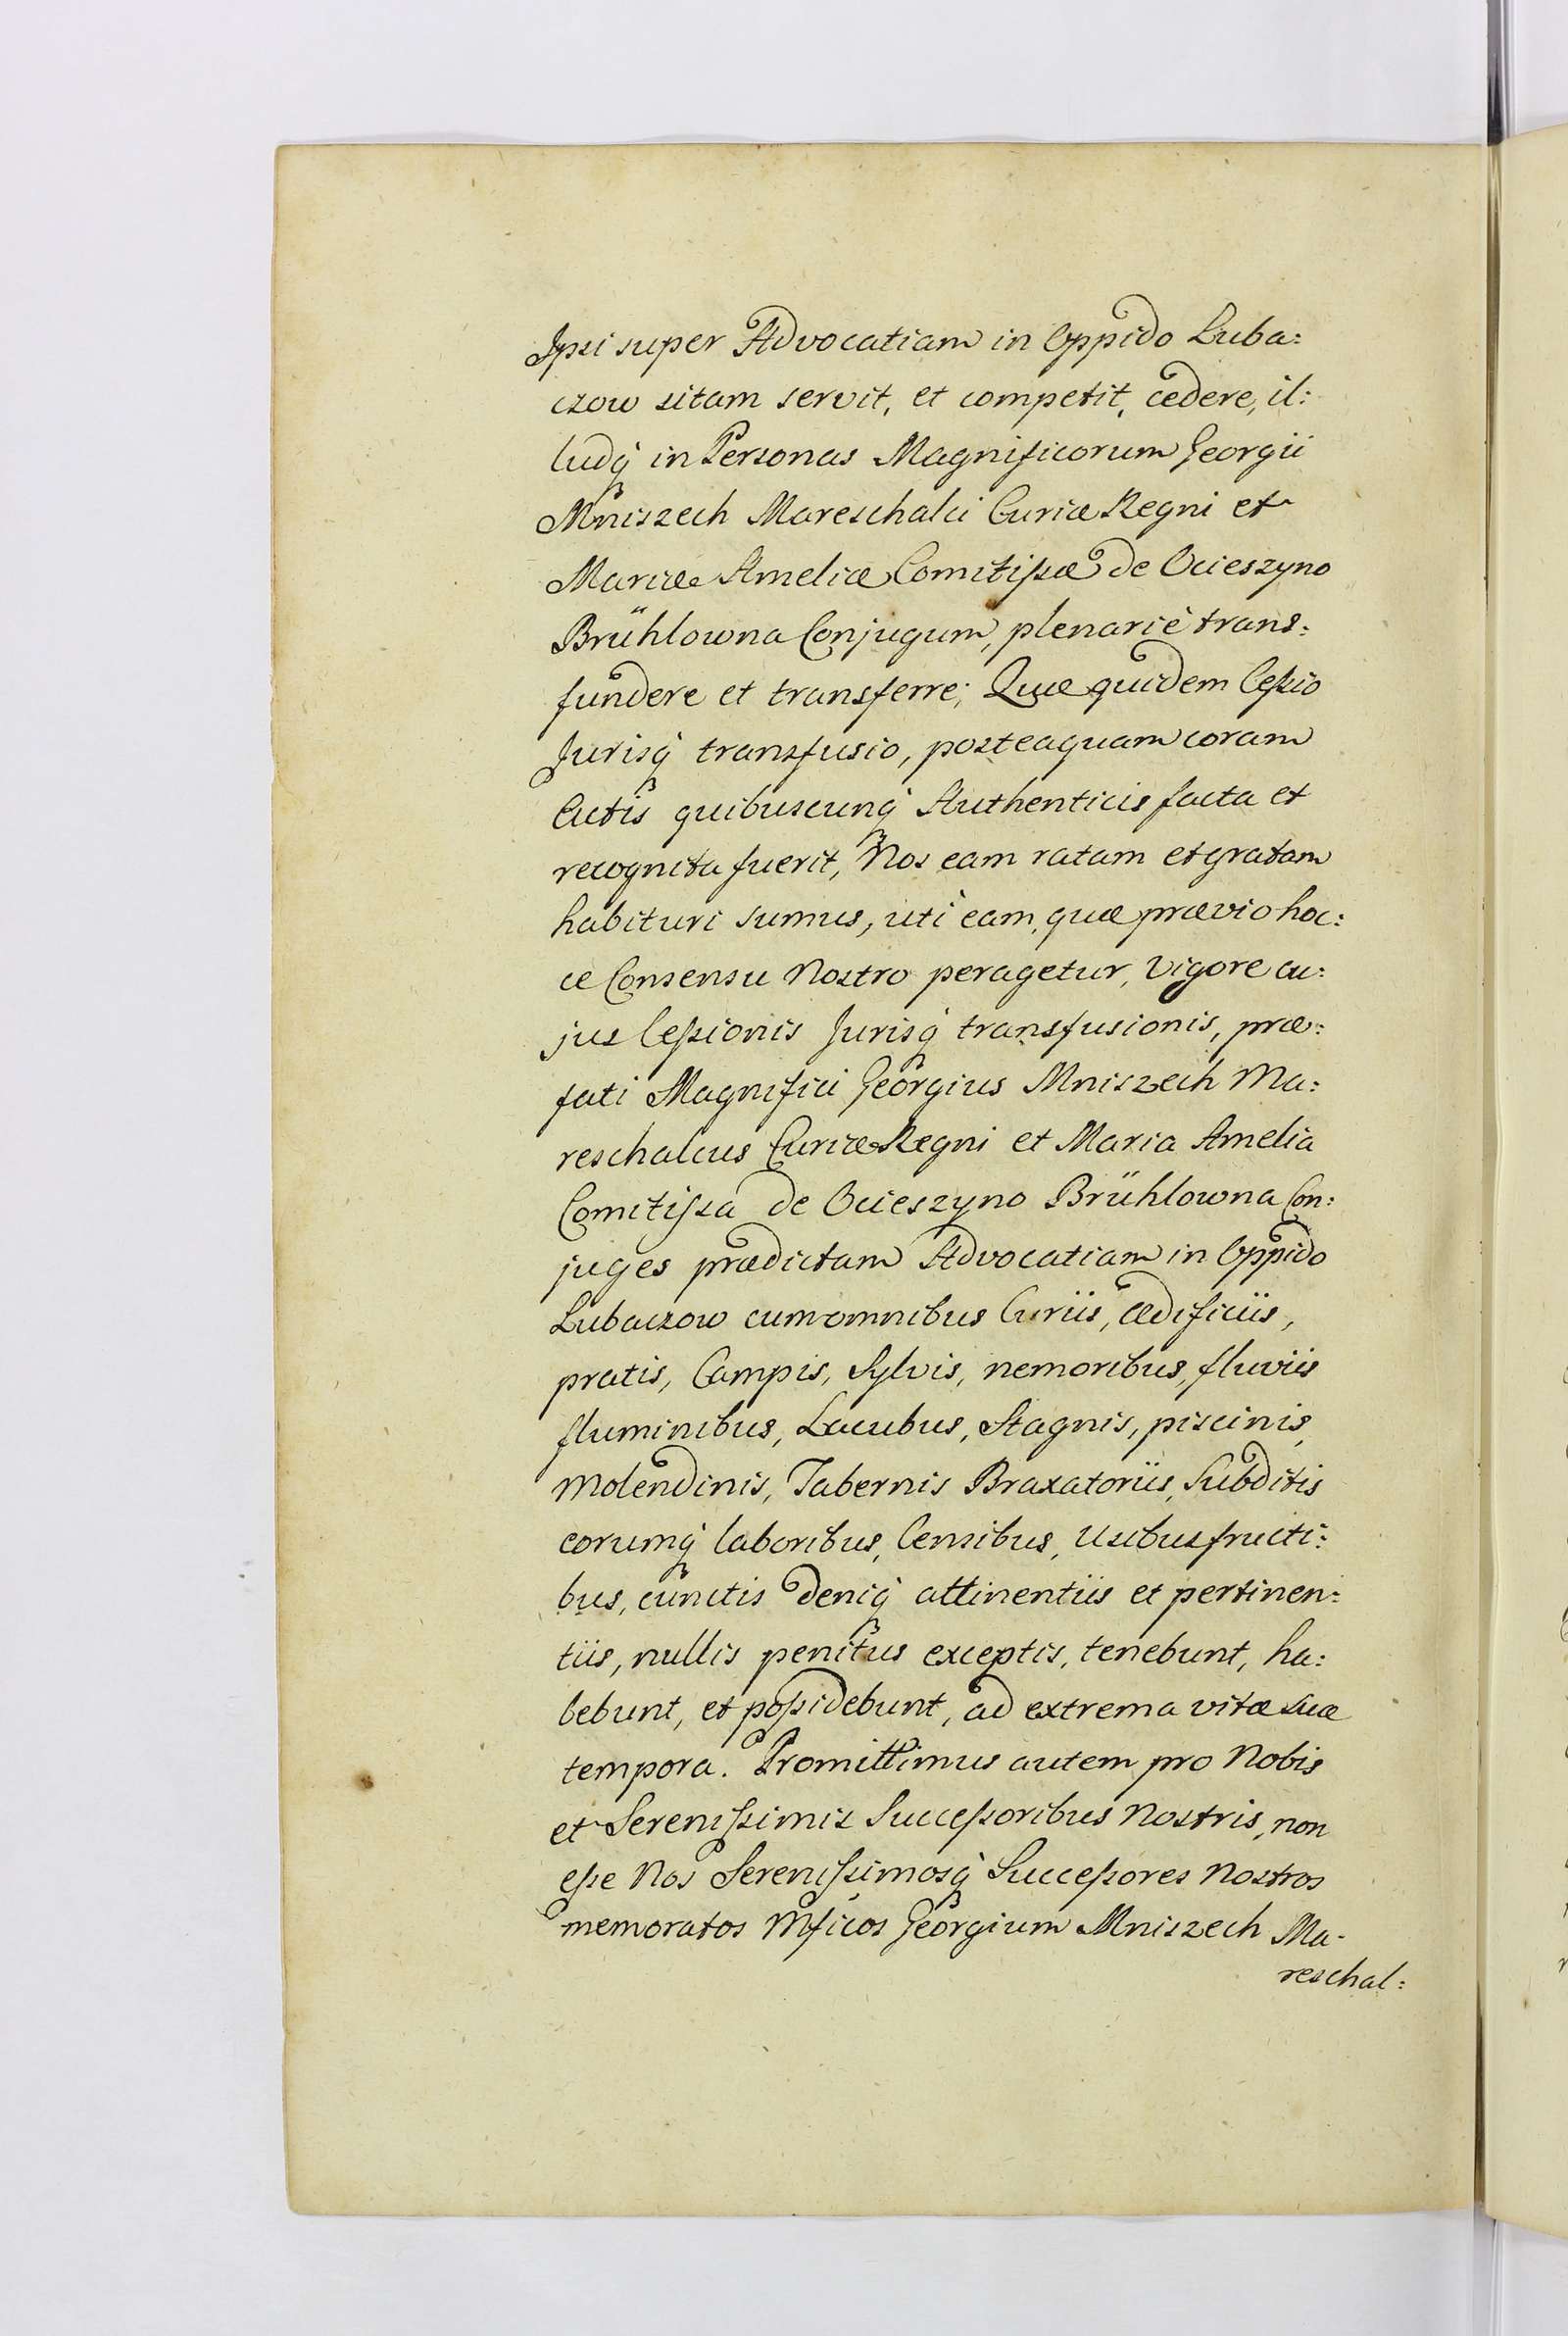 Ipsi super Advocatiam in Oppido Luba:
czow sitam servit, et competit, cedere, il:
ludq́ in Personas Magnificorum Georgii
Mniszech Mareschalci Curiæ Regni et
Mariæ Ameliæ Comitißæ de Ocieszyno
Brühlowna Conjugum, plenariè trans:
fundere et transferre; Quæ quidem Ceßio
Jurisq́ transfusio, posteaquam coram
Actis quibuscunq́ Authenticis facta et
recognita fuerit, Nos eam ratam et gratam
habituri sumus, uti eam, quæ prævio hoc:
ce Consensu Nostro peragetur, Vigore cu:
jus Ceßionis Jurisq́ transfusionis, præ:
fati Magnifici Georgius Mniszech Ma:
reschalcus Curiæ Regni et Maria Amelia
Comitißa de Ocieszyno Brühlowna Con:
juges prædictam Advocatiam in Oppido
Lubaczow cum omnibus Curiis, ædificiis,
pratis, Campis, Sylvis, nemoribus, fluviis
fluminibus, Lacubus, Stagnis, piscinis,
Molendinis, Tabernis Braxatoriis, Subditis
eorumq́ laboribus, Censibus, Usibusfructi:
bus, cunctis deniq́ attinentiis et pertinen:
tiis, nullis penitus exceptis, tenebunt, ha:
bebunt, et poßidebunt, ad extrema vitæ suæ
tempora. Promittimus autem pro Nobis
et Serenißimis Succeßoribus Nostris, non
eße Nos Serenißimosq́ Succeßores Nostros
memoratos Mficos Georgium Mniszech Ma-
reschal: